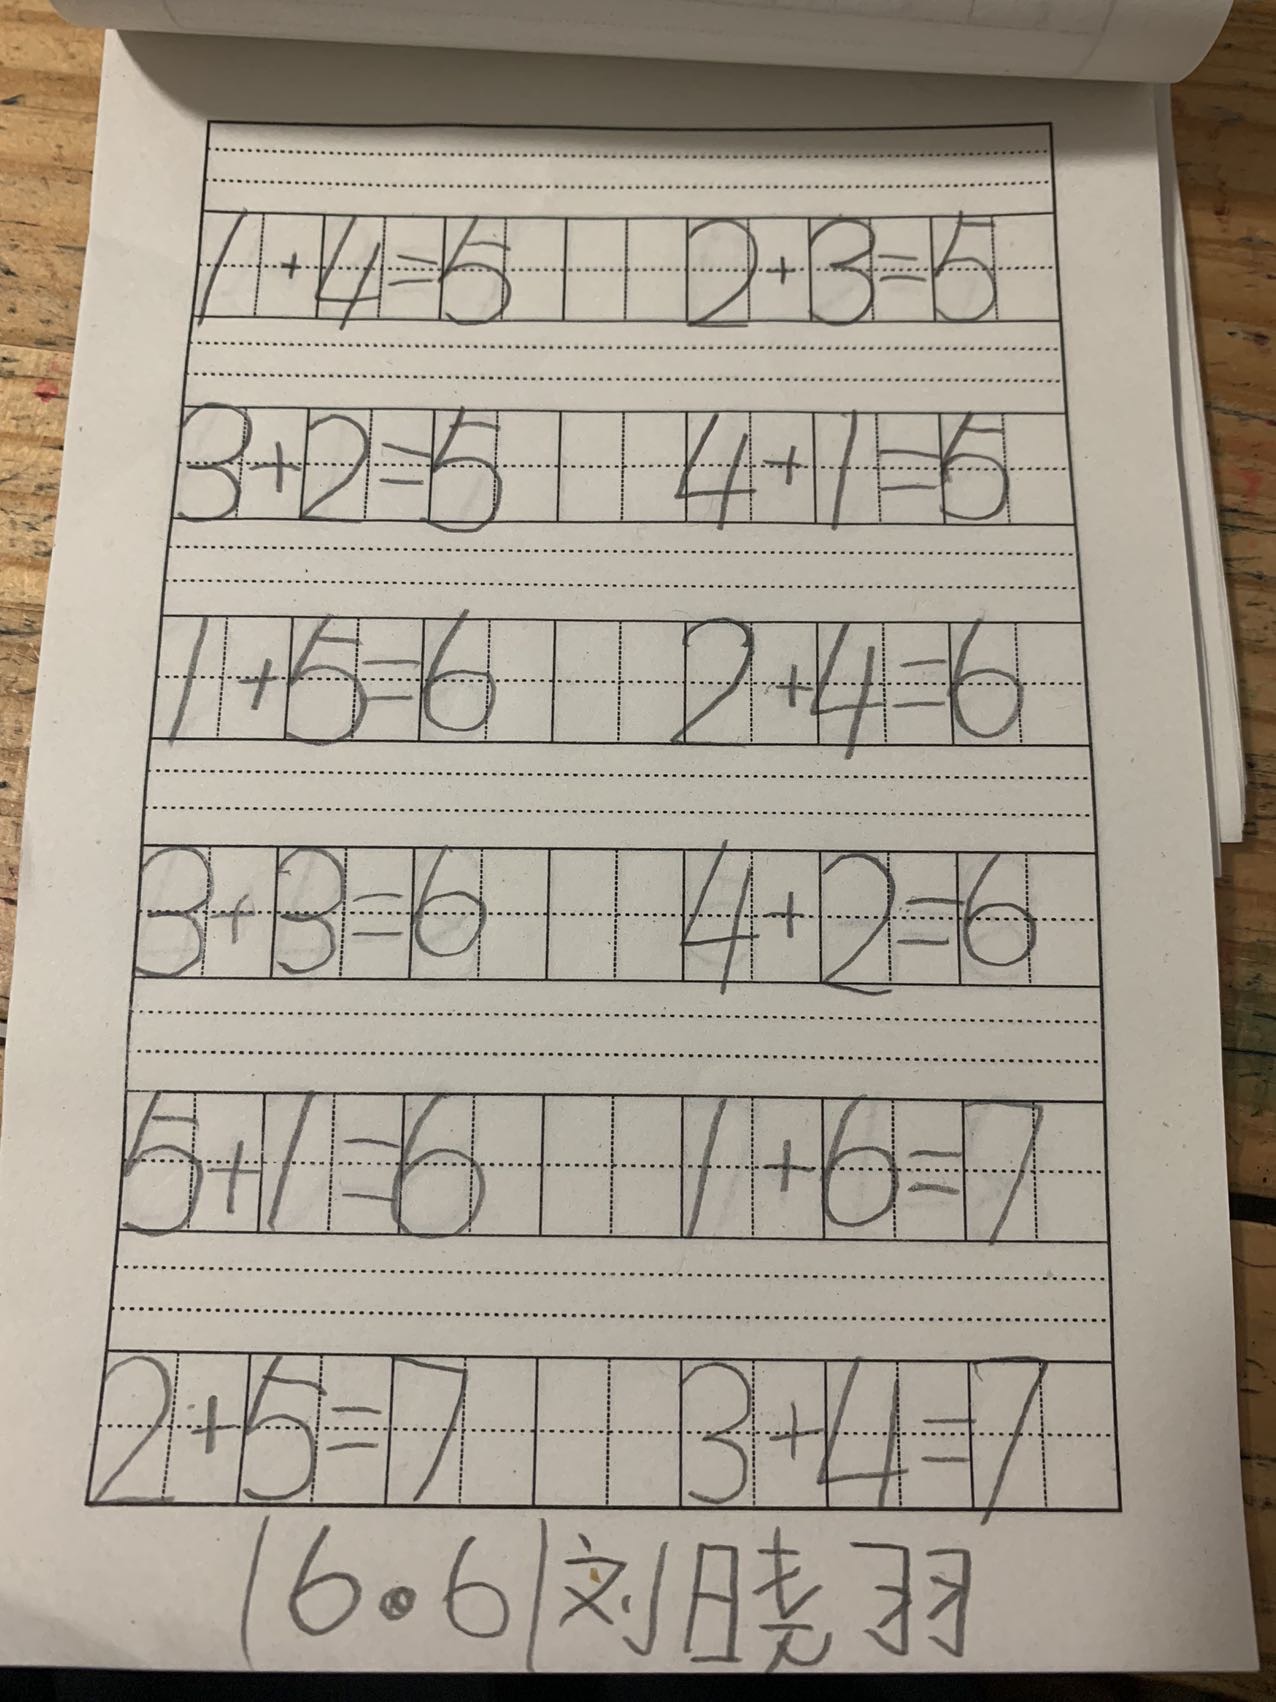 1+4=5 2+3=5
3+2=5 4+1=5
1+5=6 2+4=6
3+3=6 4+2=6
5+1=6 1+6=7
2+5=7 3+4=7
16.61刘晓羽